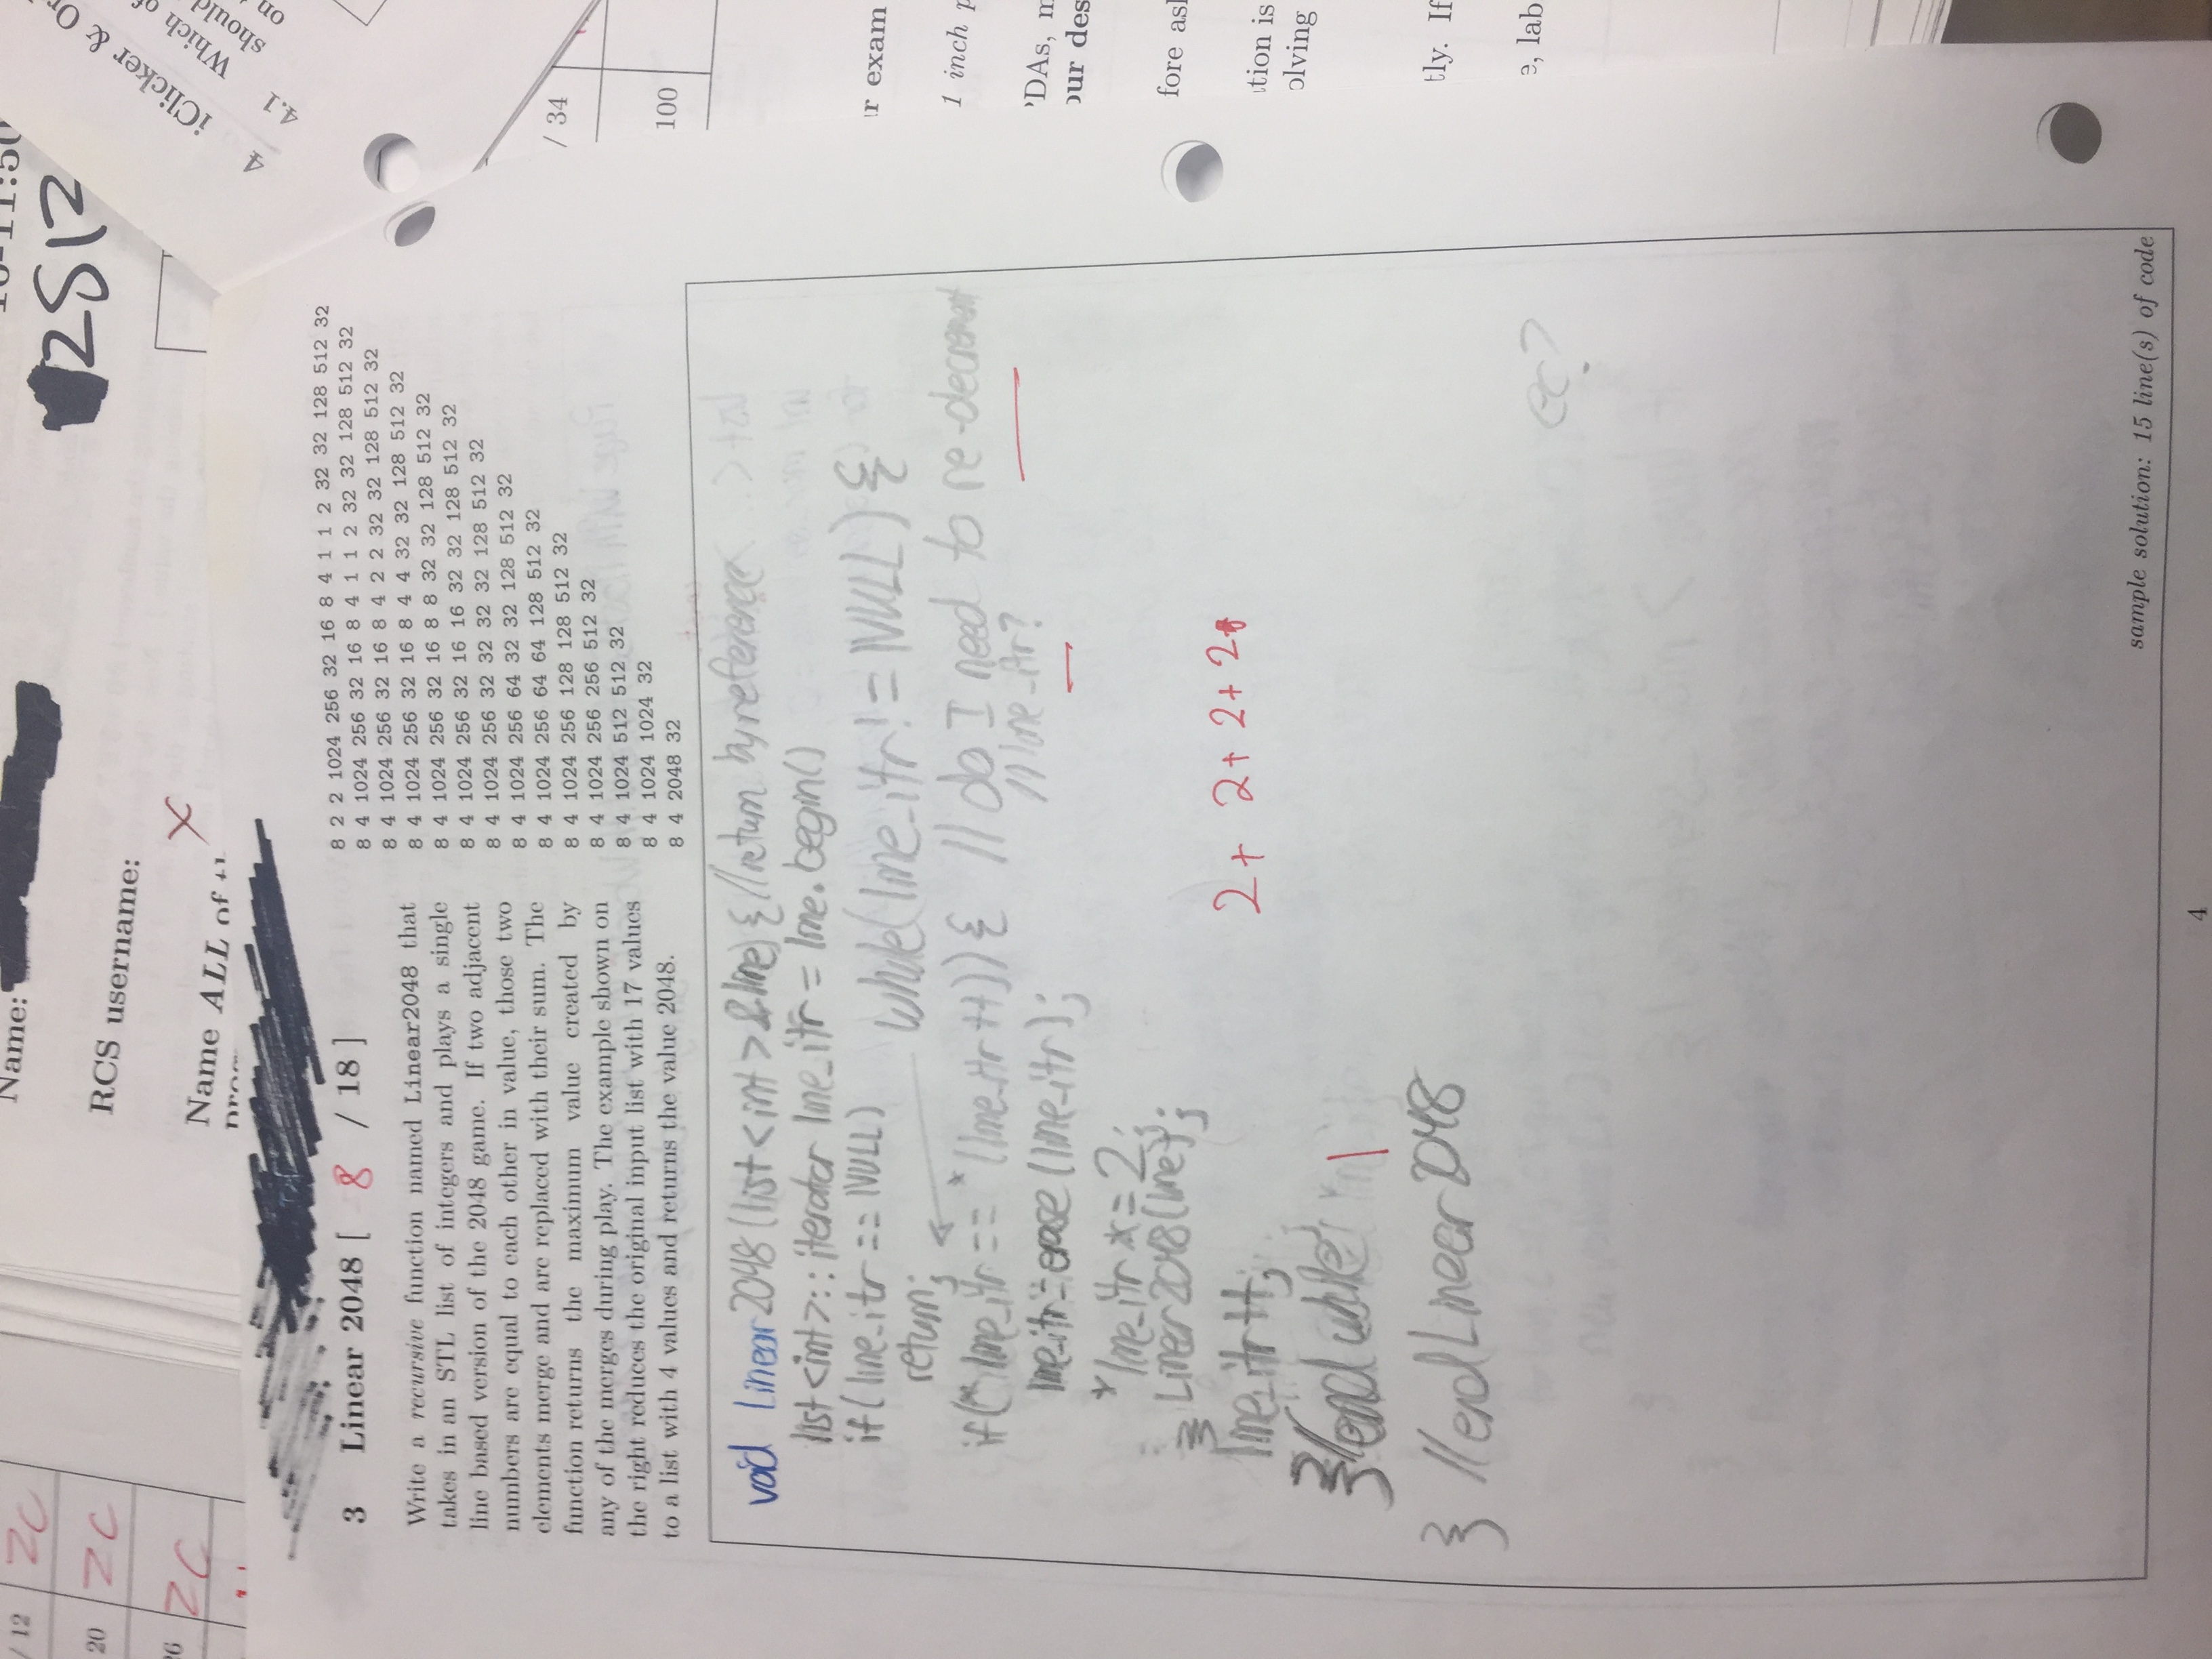 / 12 ZC
20 ZC
26 ZC
Name:
RCS username:
X
Name ALL of
10-11:50
2S12
4 iClicker &
4.1 Which of
should
on
3 Linear 2048 [ 8 / 18 ]
Write a recursive function named Linear2048 that
takes in an STL list of integers and plays a single
line based version of the 2048 game. If two adjacent
numbers are equal to each other in value, those two
elements merge and are replaced with their sum. The
function returns the maximum value created by
any of the merges during play. The example shown on
the right reduces the original input list with 17 values
to a list with 4 values and returns the value 2048.
8 2 2 1024 256 32 16 8 4 1 1 2 32 32 128 512 32
8 4 1024 256 32 16 8 4 1 1 2 32 32 128 512 32
8 4 1024 256 32 16 8 4 2 2 32 32 128 512 32
8 4 1024 256 32 16 8 4 4 32 32 128 512 32
8 4 1024 256 32 16 8 8 32 32 128 512 32
8 4 1024 256 32 16 16 32 32 128 512 32
8 4 1024 256 32 32 32 32 128 512 32
8 4 1024 256 64 32 32 128 512 32
8 4 1024 256 64 64 128 512 32
8 4 1024 256 128 128 512 32
8 4 1024 256 256 512 32
8 4 1024 512 512 32
8 4 1024 1024 32
8 4 2048 32
void Linear2048 (list <int> & line) { //return by reference
list <int>:: iterator line_itr = line.begin()
if( line_itr == NULL)
return;
while(line_itr != NULL) {
if(* line_itr == *(line_itr ++)) { // do I need to re-decrement
// line_itr?
line_itr = erase (line_itr);
*line_itr *= 2;
} Linear2048(line);
line_itr++;
2 + 2 + 2 + 2
} //end while
1
} //end Linear 2048
ec?
sample solution: 15 line(s) of code
4
/ 34
100
r exam
1 inch
PDAs,
our des
fore
tion is
olving
tly. If
e, lab